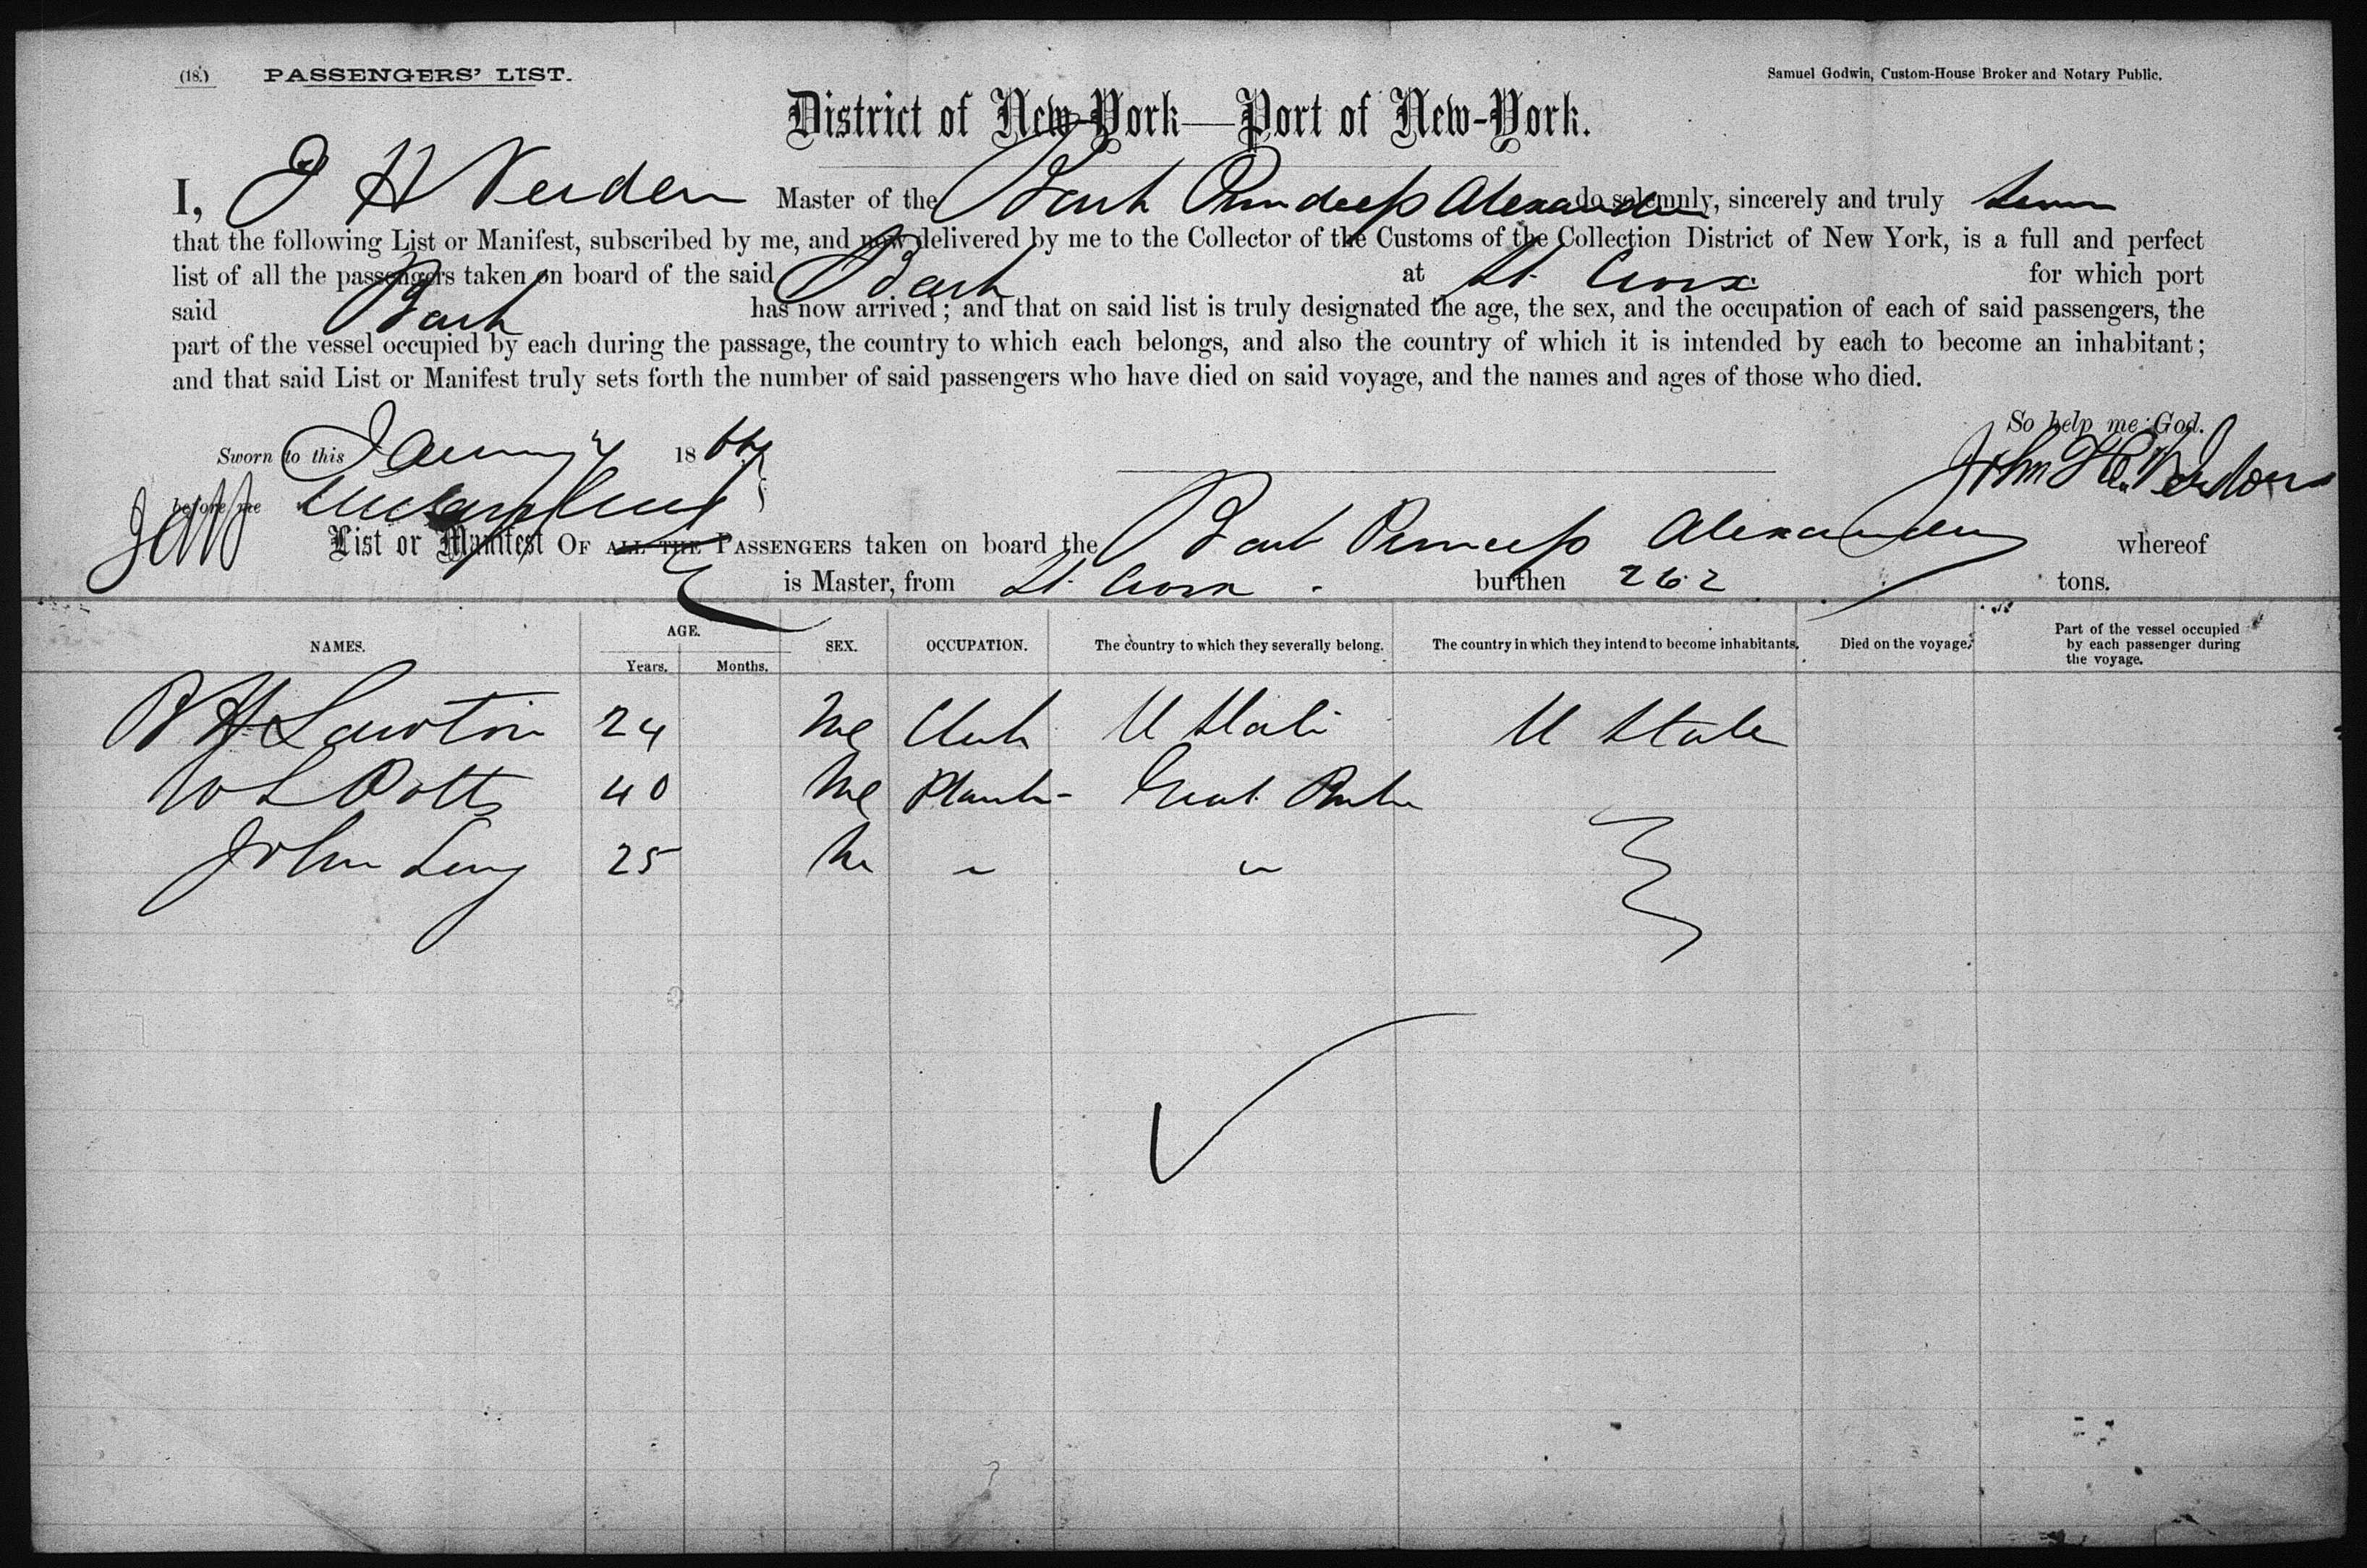 (18.) PASSENGERS' LIST.
Samuel Godwin, Custom-House Broker and Notary Public.
District of New-York—Port of New-York.
I, J H Master of the Bark Princess Alexander do solemnly, sincerely and truly swear
that the following List or Manifest, subscribed by me, and now delivered by me to the Collector of the Customs of the Collection District of New York, is a full and perfect
list of all the passengers taken on board of the said Bark at St. Croix for which port
said Bark has now arrived; and that on said list is truly designated the age, the sex, and the occupation of each of said passengers, the
part of the vessel occupied by each during the passage, the country to which each belongs, and also the country of which it is intended by each to become an inhabitant;
and that said List or Manifest truly sets forth the number of said passengers who have died on said voyage, and the names and ages of those who died.
So help me God.
Sworn to this January 1866
John H.
before me
List or Manifest OF ALL THE PASSENGERS taken on board the Bark Princess Alexander whereof
is Master, from St. Croix burthen 262 tons.
NAMES. AGE. Years. Months. SEX. OCCUPATION. The country to which they severally belong. The country in which they intend to become inhabitants. Died on the voyage. Part of the vessel occupied by each passenger during the voyage.
H Lawton 24 Me Clerk U State U State
W L Potts 40 Me Planter Great Britn
John 25 M " "